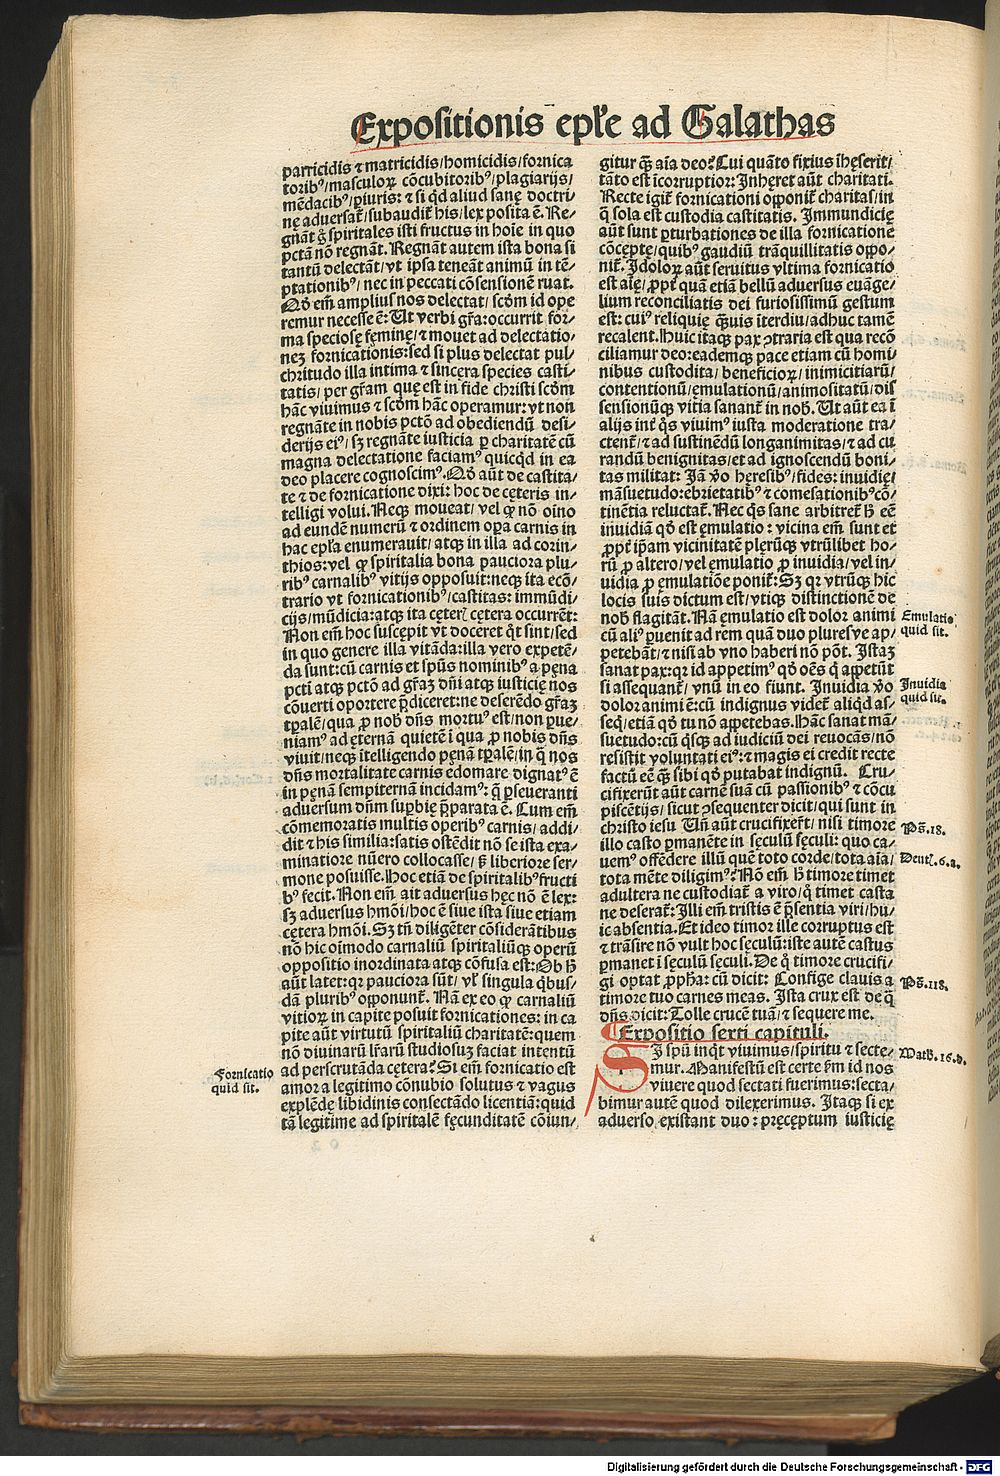 Expositionis epłe ad Galathas
parricidis ⁊ matricidis/homicidis/fornica
toribꝰ/masculoꝝ cõcubitoribꝰ/plagiarijs/
mẽdacibꝰ/ꝑiuris: ⁊ si qd aliud sanę doctri-
nę aduersat̃/subaudit̃ his/lex posita ẽ. Re-
gnãt g̊ spiritales isti fructus in hoie in quo
pctã nõ regnãt. Regnãt autem ista bona si
tantũ delectãt/vt ipsa teneãt animũ in tẽ-
ptationibꝰ/nec in peccati cõsensionẽ ruat.
Qď em̃ amplius nos delectat/scďm id ope
remur necesse ẽ: Ut verbi gr̃a: occurrit for-
ma speciosę fęminę/⁊ mouet ad delectatio-
neꝫ fornicationis: sed si plus delectat pul-
chritudo illa intima ⁊ sincera species casti-
tatis/per gr̃am quę est in fide christi scďm
hãc viuimus ⁊ scďm hãc operamur: vt non
regnãte in nobis pctõ ad obediendũ desi-
derijs eiꝰ/sꝫ regnãte iusticia ꝑ charitatẽ cũ
magna delectatione faciamꝰ quicqd in ea
deo placere cognoscimꝰ. Qď aũt de castita-
te ⁊ de fornicatione dixi: hoc de cęteris in-
telligi volui. Neqꝫ moueat/vel ꝙ nõ oino
ad eundẽ numerũ ⁊ ordinem oꝑa carnis in
hac epłа enumerauit/atqꝫ in illa ad corin-
thios: vel ꝙ spiritalia bona pauciora plu-
ribꝰ carnalibꝰ vitijs opposuit: neqꝫ ita ecõ-
trario vt fornicationibꝰ/castitas: immũdi-
cijs/mũdicia: atqꝫ ita cęterꝭ cętera occurrẽt:
Non em̃ hoc suscępit vt doceret qt sint/sed
in quo genere illa vitãda: illa vero expetẽ-
da sunt: cũ carnis et spũs nominibꝰ a pęna
pcti atqꝫ pctõ ad gr̃aꝫ dñi atqꝫ iusticię nos
cõuerti oportere p̃diceret: ne deserẽdo gr̃aꝫ
tꝑalẽ/qua ꝓ nob̃ dñs mortuꝰ est/non ꝑue-
niamꝰ ad ęternã quietẽ ĩ qua ꝓ nobis dñs
viuit/neqꝫ ĩtelligendo pęnã tꝑalẽ/in q̃ nos
dñs mortalitate carnis edomare dignatꝰ ẽ
in pęnã sempiternã incidamꝰ: q̃ ꝑseueranti
aduersum dñm supbię p̃parata ẽ. Cum em̃
cõmemoratis multis operibꝰ carnis/addi-
dit ⁊ his similia: satis ostẽdit nõ se ista exa-
minatiore nũero collocasse/ß liberiore ser-
mone posuisse. Hoc etiã de spiritalibꝰ fructi
bꝰ fecit. Non em̃ ait aduersus hęc nõ ẽ lex:
sꝫ aduersus hmõi/hoc ẽ siue ista siue etiam
cętera hmõi. Sꝫ tñ diligẽter cõsiderãtibus
nõ hic oimodo carnaliũ spiritaliũqꝫ operũ
oppositio inordinata atqꝫ cõfusa est: Ob h̃
aũt latet: qꝛ pauciora sũt/vł singula q̃bus-
dã pluribꝰ opponunt̃. Nã ex eo ꝙ carnaliũ
vitioꝝ in capite posuit fornicationes: in ca
pite aũt virtutũ spiritaliũ charitatẽ: quem
nõ diuinarũ lr̃arũ studiosuꝫ faciat intentũ
ad perscrutãda cętera? Si em̃ fornicatio est
amor a legitimo cõnubio solutus ⁊ vagus
explẽdę libidinis consectãdo licentiã: quid
tã legitime ad spiritalẽ fęcunditatẽ cõiun-
Fornicatio
quid sit.
gitur q̃ꝫ aĩa deo? Cui quãto fixius ĩhęserit/
tãto est ĩcorruptior: Inhęret aũt charitati.
Recte igit̃ fornicationi opponit̃ charitas/in
q̃ sola est custodia castitatis. Immundicię
aũt sunt ꝑturbationes de illa fornicatione
cõcępte/quibꝰ gaudiũ trãquillitatis oppo-
nit̃. Idoloꝝ aũt seruitus vltima fornicatio
est aĩę/ꝓpt̃ quã etiã bellũ aduersus euãge-
lium reconciliatis dei furiosissimũ gestum
est: cuiꝰ reliquię q̃ꝫuis ĩterdiu/adhuc tamẽ
recalent. Huic itaqꝫ pax ↄtraria est qua recõ
ciliamur deo: eademqꝫ pace etiam cũ homi-
nibus custodita/beneficioꝝ/inimicitiarũ/
contentionũ/ęmulationũ/animositatũ/dis
sensionũqꝫ vitia sanant̃ in nob̃. Ut aũt ea ĩ
alijs int̃ q̃s viuimꝰ iusta moderatione tra-
ctent̃/⁊ ad sustinẽdũ longanimitas/⁊ ad cu
randũ benignitas/et ad ignoscendũ boni-
tas militat: Iã ṽo hęresibꝰ/fides: inuidię/
mãsuetudo: ebrietatibꝰ ⁊ comesationibꝰ cõ-
tinẽtia reluctat̃. Nec q̃s sane arbitret̃ h̃ eẽ
inuidiã qď est ęmulatio: vicina em̃ sunt et
ꝓpt̃ ip̃am vicinitatẽ plerũqꝫ vtrũlibet ho-
rũ ꝓ altero/vel ęmulatio ꝓ inuidia/vel in-
uidia ꝓ ęmulatiõe ponit̃: Sꝫ qꝛ vtrũqꝫ hic
locis suis dictum est/vtiqꝫ distinctionẽ de
nob̃ flagitãt. Nã ęmulatio est dolor animi
cũ aliꝰ ꝑuenit ad rem quã duo pluresve ap-
petebãt/⁊ nisi ab vno haberi nõ põt. Istaꝫ
sanat pax: qꝛ id appetimꝰ qď oẽs q̃ appetũt
si assequant̃/vnũ in eo fiunt. Inuidia ṽo
dolor animi ẽ: cũ indignus videt̃ aliqd as-
seq̃/etiã qď tu nõ appetebas. Hãc sanat mã-
suetudo: cũ q̃sqꝫ ad iudiciũ dei reuocãs/nõ
resistit voluntati eiꝰ: ⁊ magis ei credit recte
factũ eẽ q̃ꝫ sibi qď putabat indignũ. Cru-
cifixerũt aũt carnẽ suã cũ passionibꝰ ⁊ cõcu
piscẽtijs/sicut ↄsequenter dicit/qui sunt in
christo iesu Uñ aũt crucifixer̃t/nisi timore
illo casto ꝑmanẽte in sęculũ sęculi: quo ca-
uemꝰ offẽdere illũ quẽ toto corde/tota aĩa/
tota mẽte diligimꝰ? Nõ em̃ h̃ timore timet
adultera ne custodiat̃ a viro/q̊ timet casta
ne deserat̃: Illi em̃ tristis ẽ p̃sentia viri/hu-
ic absentia. Et ideo timor ille corruptus est
⁊ trãsire nõ vult hoc sęculũ: iste autẽ castus
ꝑmanet ĩ sęculũ sęculi. De q̊ timore crucifi-
gi optat ꝓpħa: cũ dicit: Confige clauis a
timore tuo carnes meas. Ista crux est de q̃
dñs dicit: Tolle crucẽ tuã/⁊ sequere me.
Expositio sexti capituli.
SI spũ inq̃t viuimus/spiritu ⁊ secte-
mur. Manifestũ est certe ẝm id nos
viuere quod sectati fuerimus: secta-
bimur autẽ quod dilexerimus. Itaqꝫ si ex
aduerso existant duo: pręcęptum iusticię
Emulatio
quid sit.
Inuidia
quid sit.
Pš. 18.
Deut. 6. a.
Pš. 118.
Math. 16. d.
Digitalisierung gefördert durch die Deutsche Forschungsgemeinschaft - DFG